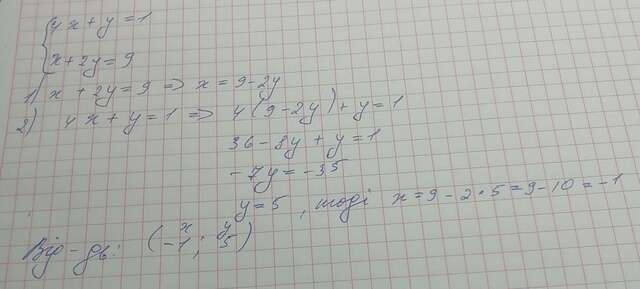 4x + y = 1
x + 2y = 9
1) x + 2y = 9 => x = 9 - 2y
2) 4x + y = 1 => 4(9 - 2y) + y = 1
36 - 8y + y = 1
-7y = -35
y = 5, тоді x = 9 - 2 • 5 = 9 - 10 = -1
x y
Від-дь: (-1; 5)